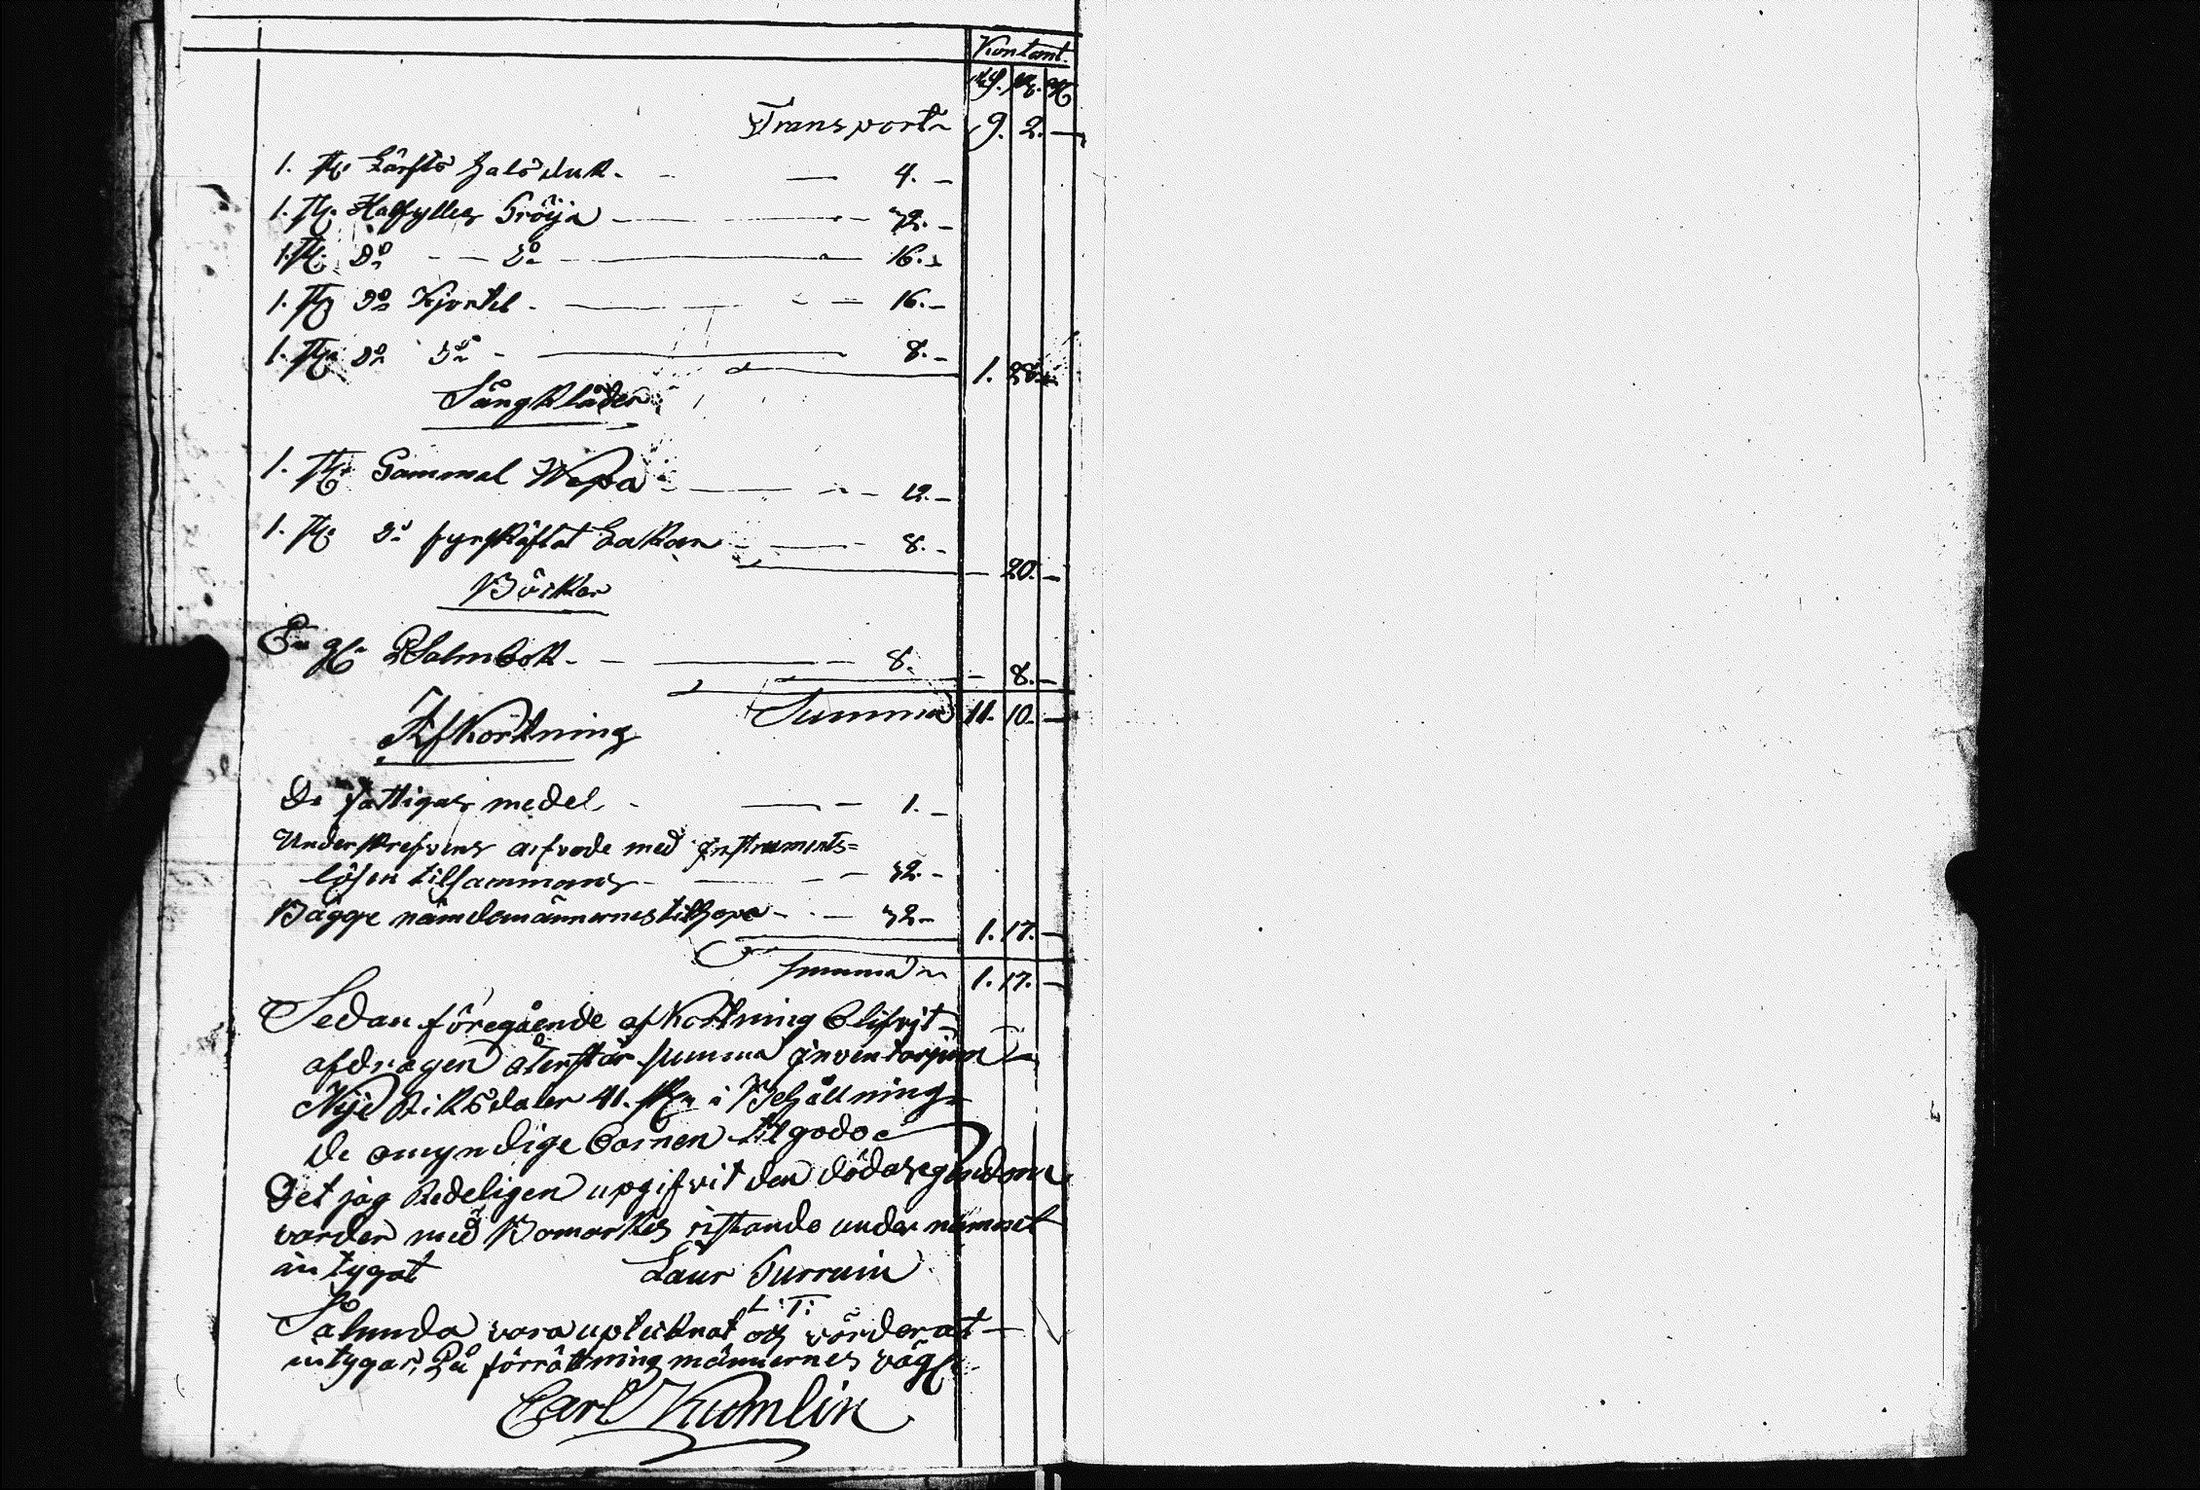 Kontant.
Rd. sk. rst
Transport 9. 2. —
1. st. Lärfts halsduk. — 4. —
1. st. Halfylles Tröija — 32. —
1. st. Do — Do — 16. —
1. st. Do Kjortel — 16. —
1. st. Do Do — 8. —
1. 28. —
Sängkläder
1. st. Gammal Wepa — 12. —
1. st. Do fyrskäftat Lakan — 8. —
— 20. —
Böcker
En gl. Psalmbok — 8.
— 8. —
Summa 11. 10. —
Afkortning
De fattigas medel — 1. —
Underskrefvens arfvode med Instruments=
lösen tilsammans — 32. —
Bägge nämdemännernes tilhopa — 32 —
1. 17. —
summa 1. 17. —
Sedan föregående afkortning blifvit
afdragen återstår summa Inventarjum
Nije Riksdaler 41. sk. i Behållning
de omyndige barnen til godo
Det jag Redeligen upgifvit den dödas egendom
varder med Bomärkes ristande under namnet
intygat Laur Turruin
L. T.
Sålunda vara uptecknat och värderat
intygar, På förrättningsmännernes väg.
Carl Kumlin